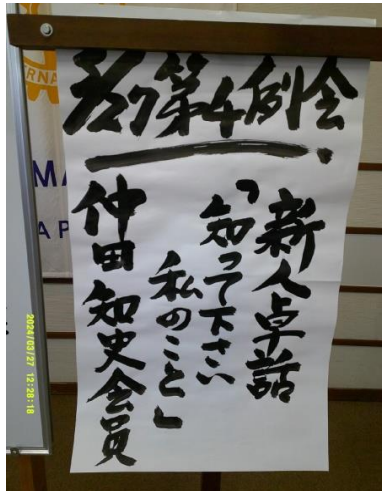 3/27第4例会
新人卓話
「知って下さい
私のこと」
仲田知史会員
MA
AP
2024/03/27 12:28:18